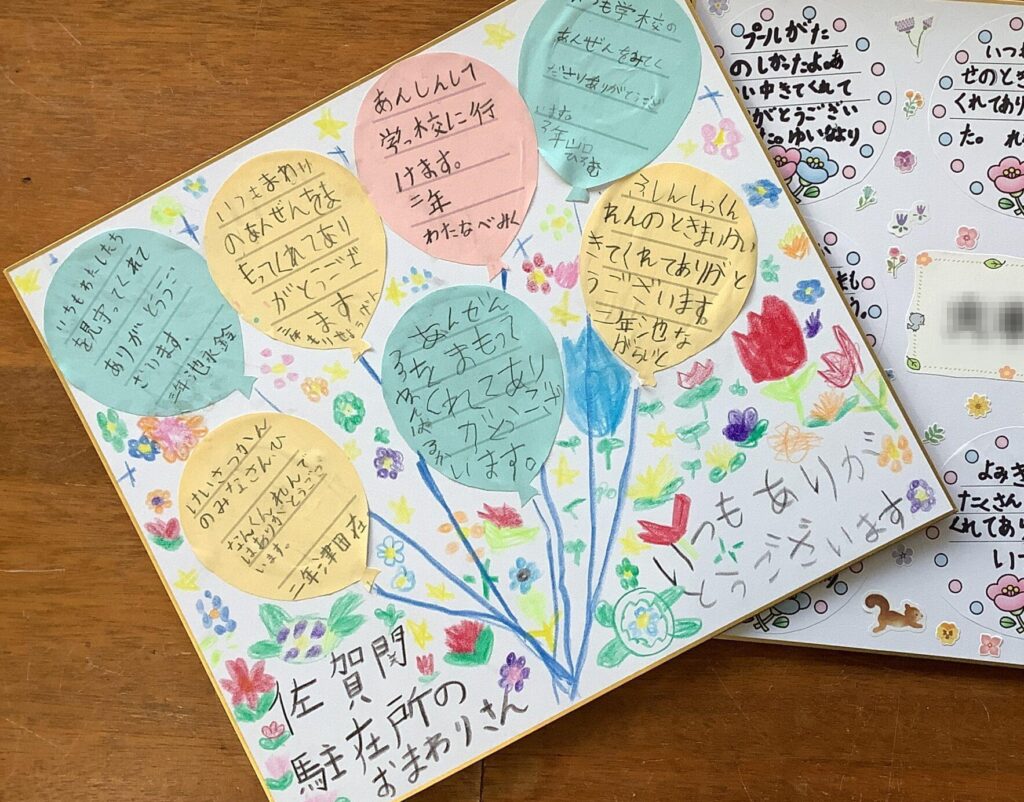 いつも学校の
あんぜんをみてく
ださりありがとうござい
います。
3年山口
あんしんして
学っ校に行
けます。
二年
わたなべみく
いつもまわり
のあんぜんをま
もってくれてあり
がとうござい
ます
いつもわたしたち
を見守ってくれて
ありがとうご
ざいます。
三年池永鈴
ふしんしゃくん
れんのときまいかい
きてくれてありがと
うございます。
二年池な
がらいと
あんぜん
まもって
くれてあり
がとうござ
います。
けいさつかん
のみなさんひ
なんくんれんって
はありがとうござ
います。
二年津田在
いつもありが
とうございます
佐賀関
駐在所の
おまわりさん
プールがた
のしかったよ。あ
い中きてくれて
がとうござい
た。ゆいなより
いつ
せのとき
くれてあり
た。
よみき
たくさん
くれてあり
いつ